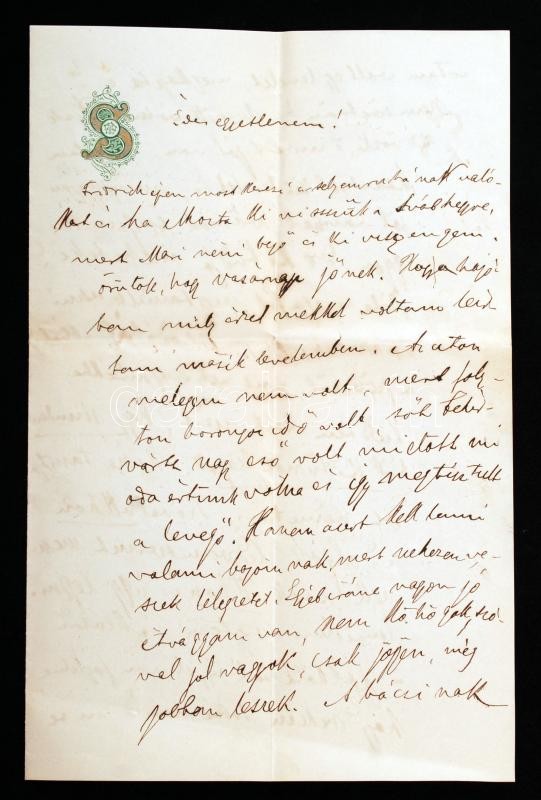 S
Édes egyetlenem!
Fridrich épen most keresi a selyemruhának való-
kat és ha elhozta ki visszük a Svábhegyre,
mert Mari néni bejő és ki visz engem.
Örülök, hogy vasárnap jönek. Hogy a hajó
ban mily érzelmekkel voltam leír
tam másik levelemben. Az uton
melegem nem volt mert foly-
ton borongos idő volt sőt Fehér-
várt nagy eső volt mielőtt mi
oda értünk volna és így megtisztult
a levegő. Hanem azért kell lenni
valami bajomnak, mert nehezen ve-
szek lélegzetet. Egyébiránt nagyon jó
étvágyam van, nem köhögök, szó-
val jól vagyok, csak jöjjön, még
jobban leszek. A bácsinak